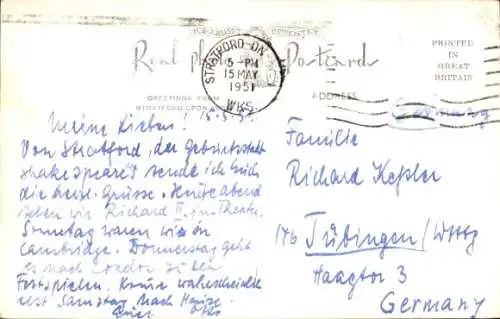 J.V. TRUST COVENTRY
Real Photo Postcards
PRINTED
IN
GREAT
BRITAIN
GREETINGS FROM
STRATFORD-UPON-
ADDRESS
STRATFORD-ON-
5 - PM
15 MAY
1951
WKS.
Germany
15.5.51.
Meine Lieben!
Von Stratford, der Geburtsstadt
Shakespeare's sende ich Euch
die herzl. Grüsse. Heute abend
sehen wir Richard II. im Theater.
Sonntag waren wir in
Cambridge. Donnerstag geht
es nach London zu den
Festspielen. Komme wahrscheinlich
erst Samstag nach Hause.
Euer
Familie
Richard Kepler
14b Tübingen/Wttg
Haagtor 3
Germany